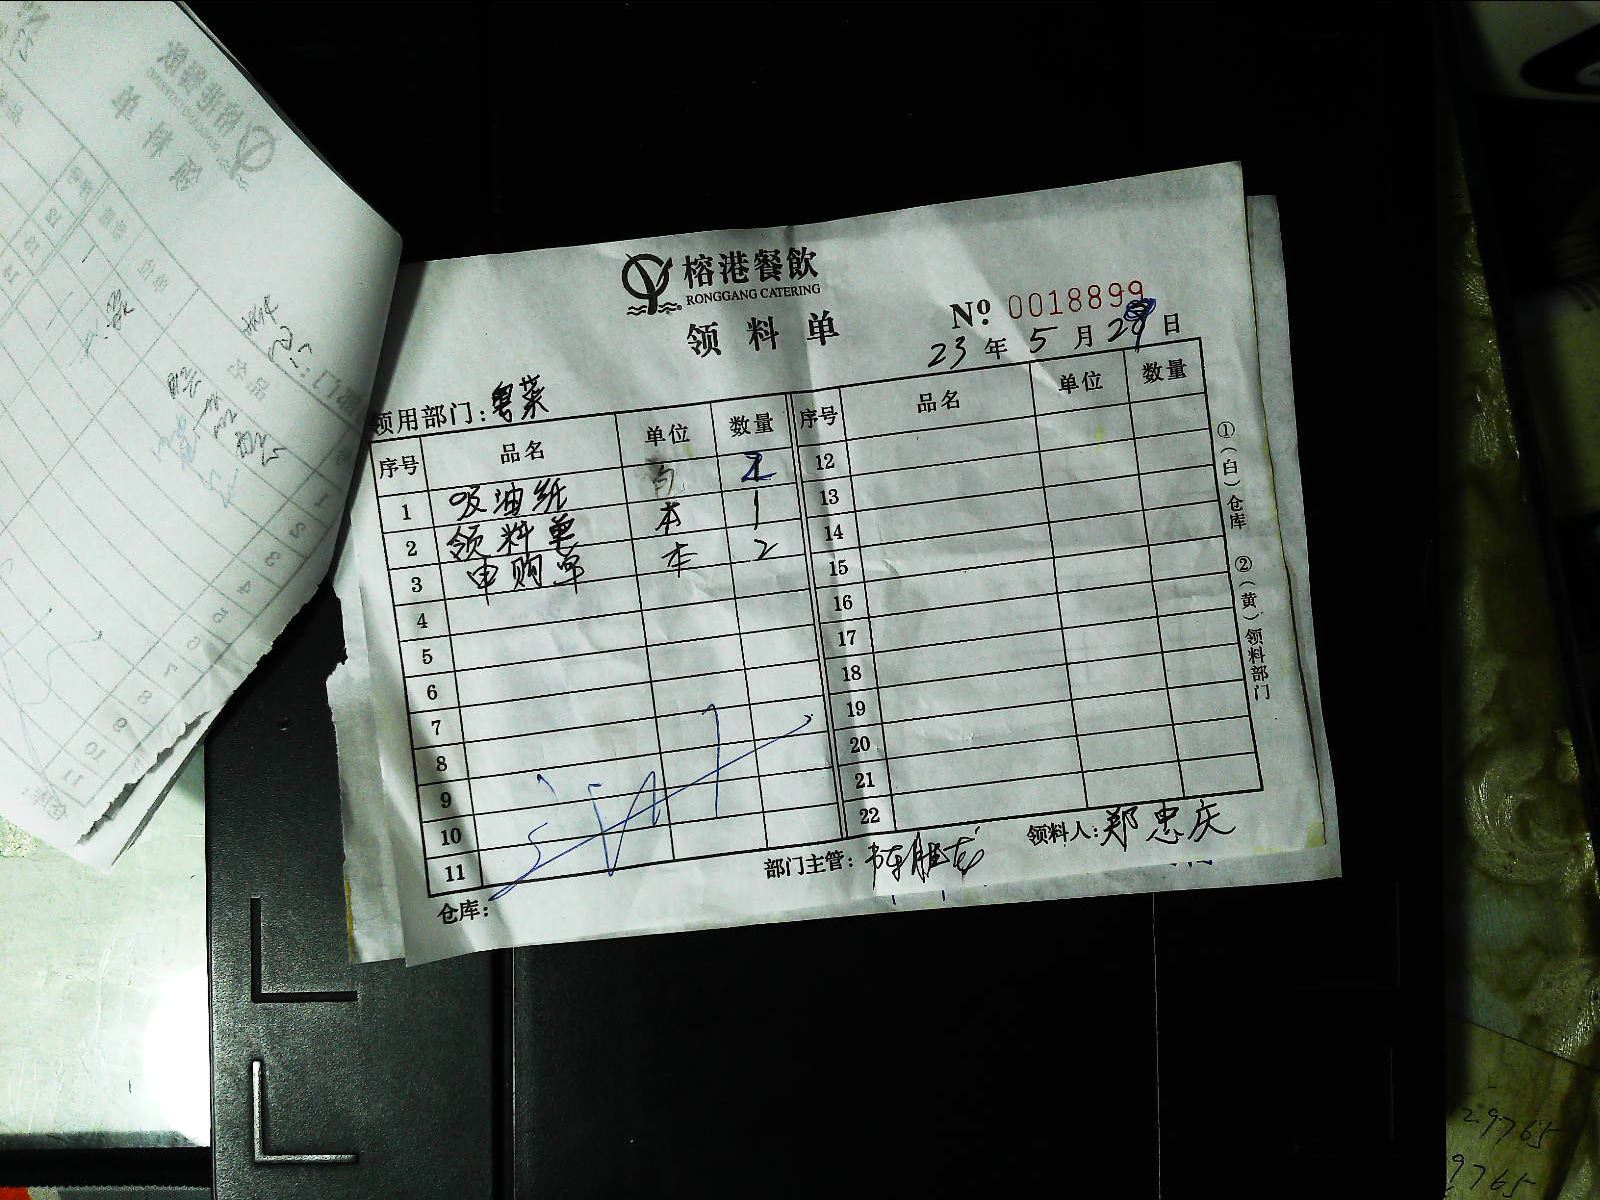 榕港餐飲
RONGGANG CATERING
领料单
№ 0018899
23 年 5 月 29 日
领用部门: 粤菜
序号 品名 单位 数量 序号 品名 单位 数量
1 吸油纸 12
2 领料单 本 1 13
3 申购单 本 2 14
4 15
5 16
6 17
7 18
8 19
9 20
10 21
11 22
仓库: 部门主管: 领料人: 郑忠庆
①(白)仓库 ②(黄)领料部门
29765
9765